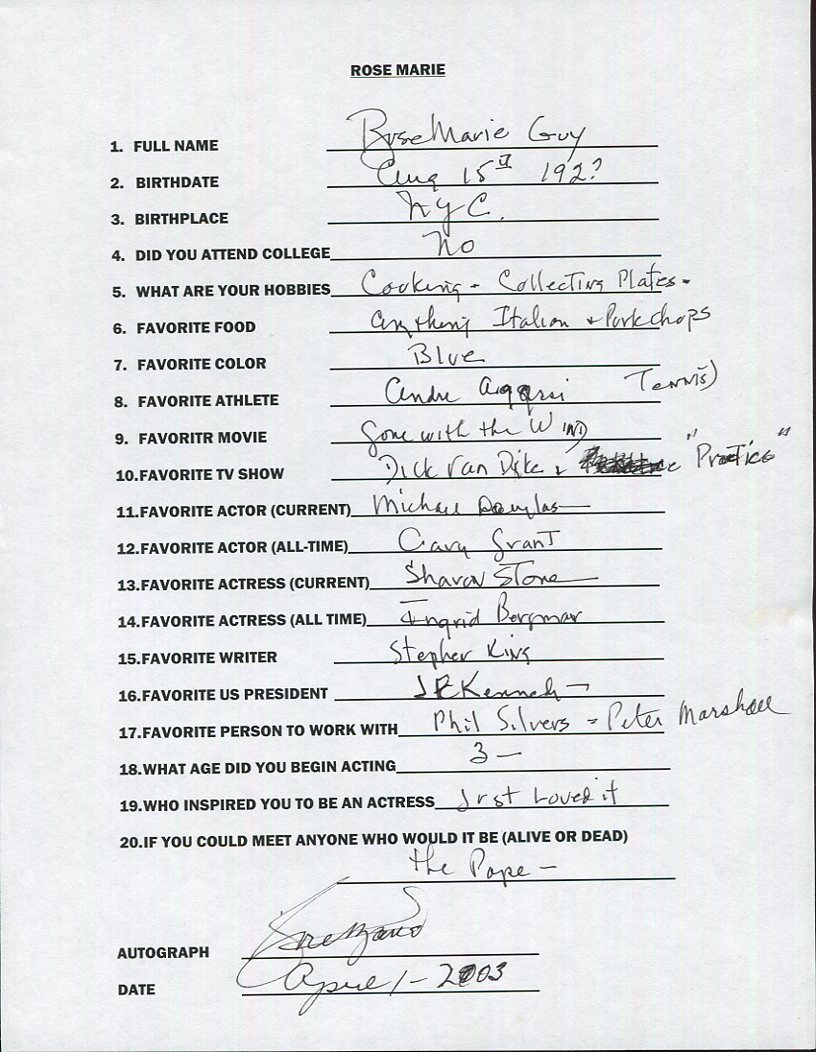 ROSE MARIE
1. FULL NAME RoseMarie Guy
2. BIRTHDATE Aug 15th 192?
3. BIRTHPLACE N.Y.C.
4. DID YOU ATTEND COLLEGE No
5. WHAT ARE YOUR HOBBIES Cooking - Collecting Plates -
6. FAVORITE FOOD anything Italian + Pork chops
7. FAVORITE COLOR Blue
8. FAVORITE ATHLETE Andre Agassi Tennis)
9. FAVORITR MOVIE Gone with the Wind
10.FAVORITE TV SHOW Dick Van Dyke & "Practice"
11.FAVORITE ACTOR (CURRENT) Michael Douglas
12.FAVORITE ACTOR (ALL-TIME) Cary Grant
13.FAVORITE ACTRESS (CURRENT) Sharon Stone
14.FAVORITE ACTRESS (ALL TIME) Ingrid Bergman
15.FAVORITE WRITER Stephen King
16.FAVORITE US PRESIDENT JFKennedy
17.FAVORITE PERSON TO WORK WITH Phil Silvers - Peter Marshall
18.WHAT AGE DID YOU BEGIN ACTING 3 -
19.WHO INSPIRED YOU TO BE AN ACTRESS Just Loved it
20.IF YOU COULD MEET ANYONE WHO WOULD IT BE (ALIVE OR DEAD)
the Pope -
AUTOGRAPH Rose Marie
DATE April 1 - 2003